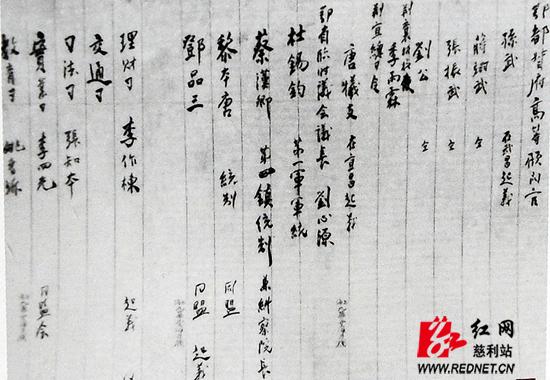 鄂都督府高等顾问官
孫武 在武昌起義
蔣翊武 仝
張振武 仝
劉公 仝
荆宜
李雨霖
唐犧支 在宜昌起義
鄂省臨時議会議長 劉心源
杜錫鈞 第一軍軍統
蔡漢卿 第四鎮統制 兼糾察院長
黎本唐 統制 同盟
鄧品三 同盟 起義
理財司 李作棟 起義
交通司
司法司 張知本
實業司 李四光 同盟会
教育司 姚
红网
慈利站
WWW.REDNET.CN